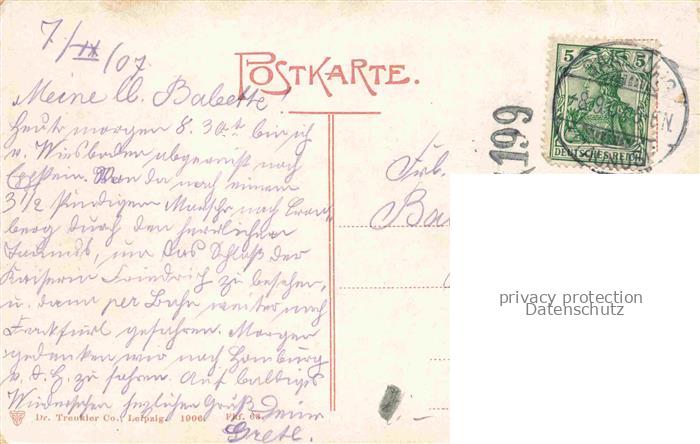 7/IX/07
POSTKARTE.
Meine lb. Babette!
Heute morgen 8.30 bin ich
v. Wiesbaden abgereist nach
Eppstein. Von da nach einem
3 1/2 stündigen Marsche nach Cron-
berg durch den herrlichen
Taunus, um das Schloß der
Kaiserin Friedrich zu besehen,
u. dann per Bahn weiter nach
Frankfurt gefahren. Morgen
gedenken wir nach Homburg
v. d. H. zu fahren. Auf baldiges
Wiedersehen herzlichen Gruß Deine
Gretl.
Dr. Trenkler Co., Leipzig. 1906. Fkf. 63.
5 5
DEUTSCHES REICH
199
Frl.
Ba
privacy protection
Datenschutz